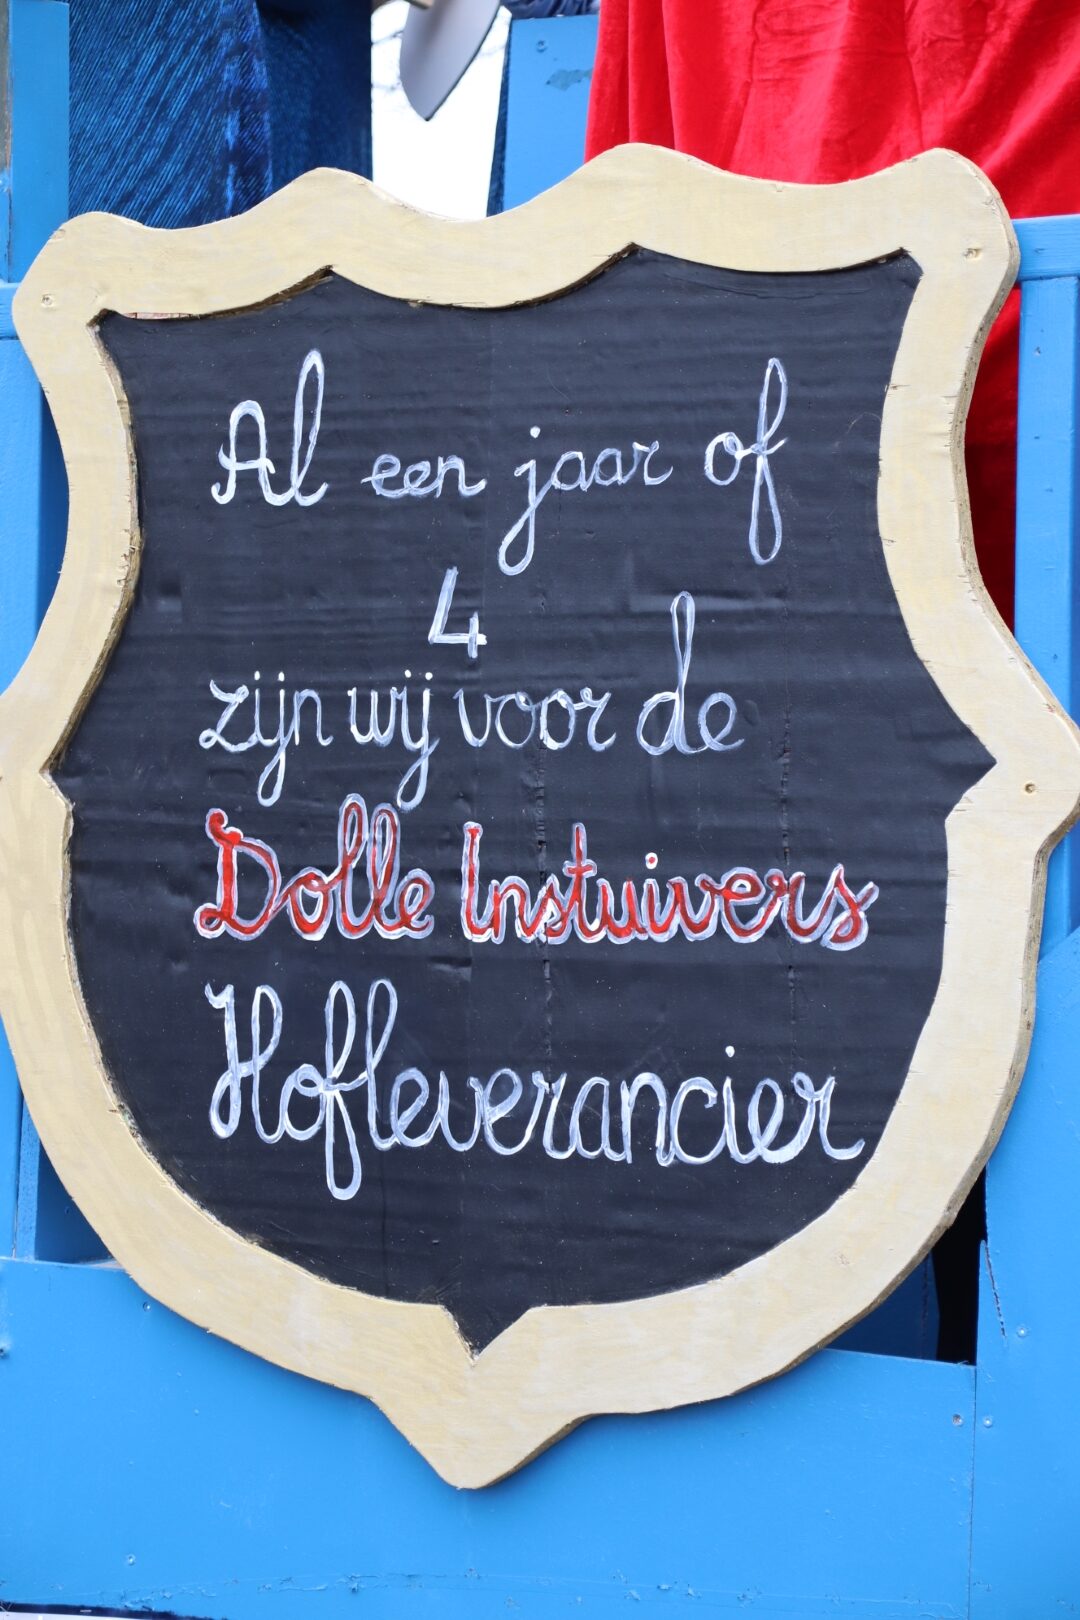 Al een jaar of
4
zijn wij voor de
Dolle Instuivers
Hofleverancier